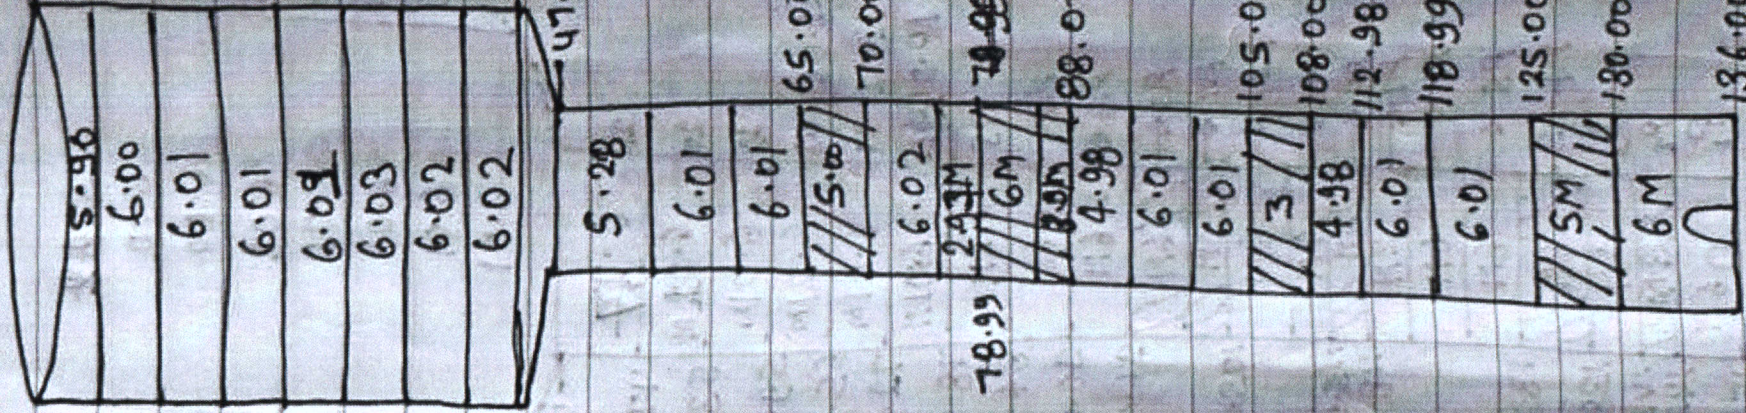 5.90
6.00
6.01
6.01
6.09
6.03
6.02
6.02
5.28
6.01
6.01
5.00
6.02
2.93M
6M
4.98
6.01
6.01
3
4.98
6.01
6.01
5M
6M
65.0
70.0
78.99
88.0
105.0
108.00
112.98
118.99
125.00
130.00
136.0
78.99